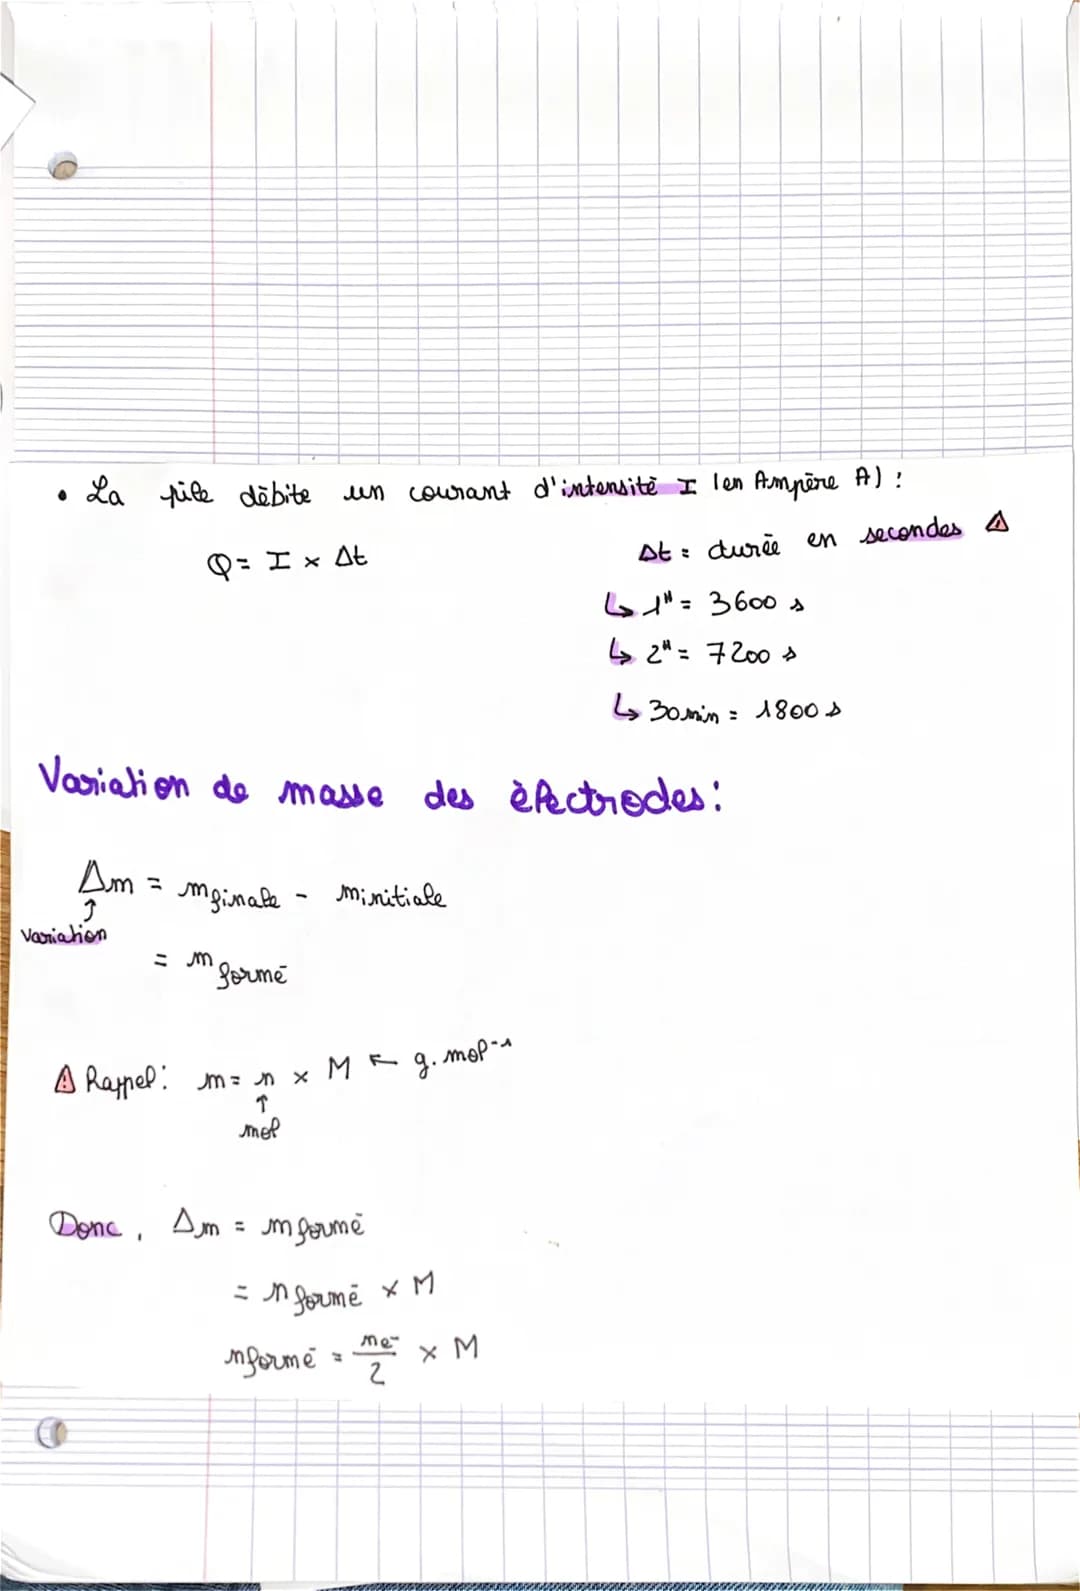 • La pile débite un courant d'intensité I (en Ampère A) :
Q = I × Δt
Δt = durée en secondes ⚠
↳ 1H = 3600 s
↳ 2H = 7200 s
↳ 30min = 1800 s
Variation de masse des électrodes :
Δm = mfinale - minitiale
↑
variation
= m formé
⚠ Rappel : m = n × M ← g.mol-1
↑
mol
Donc, Δm = m formé
= n formé × M
nformé = ne-/2 × M